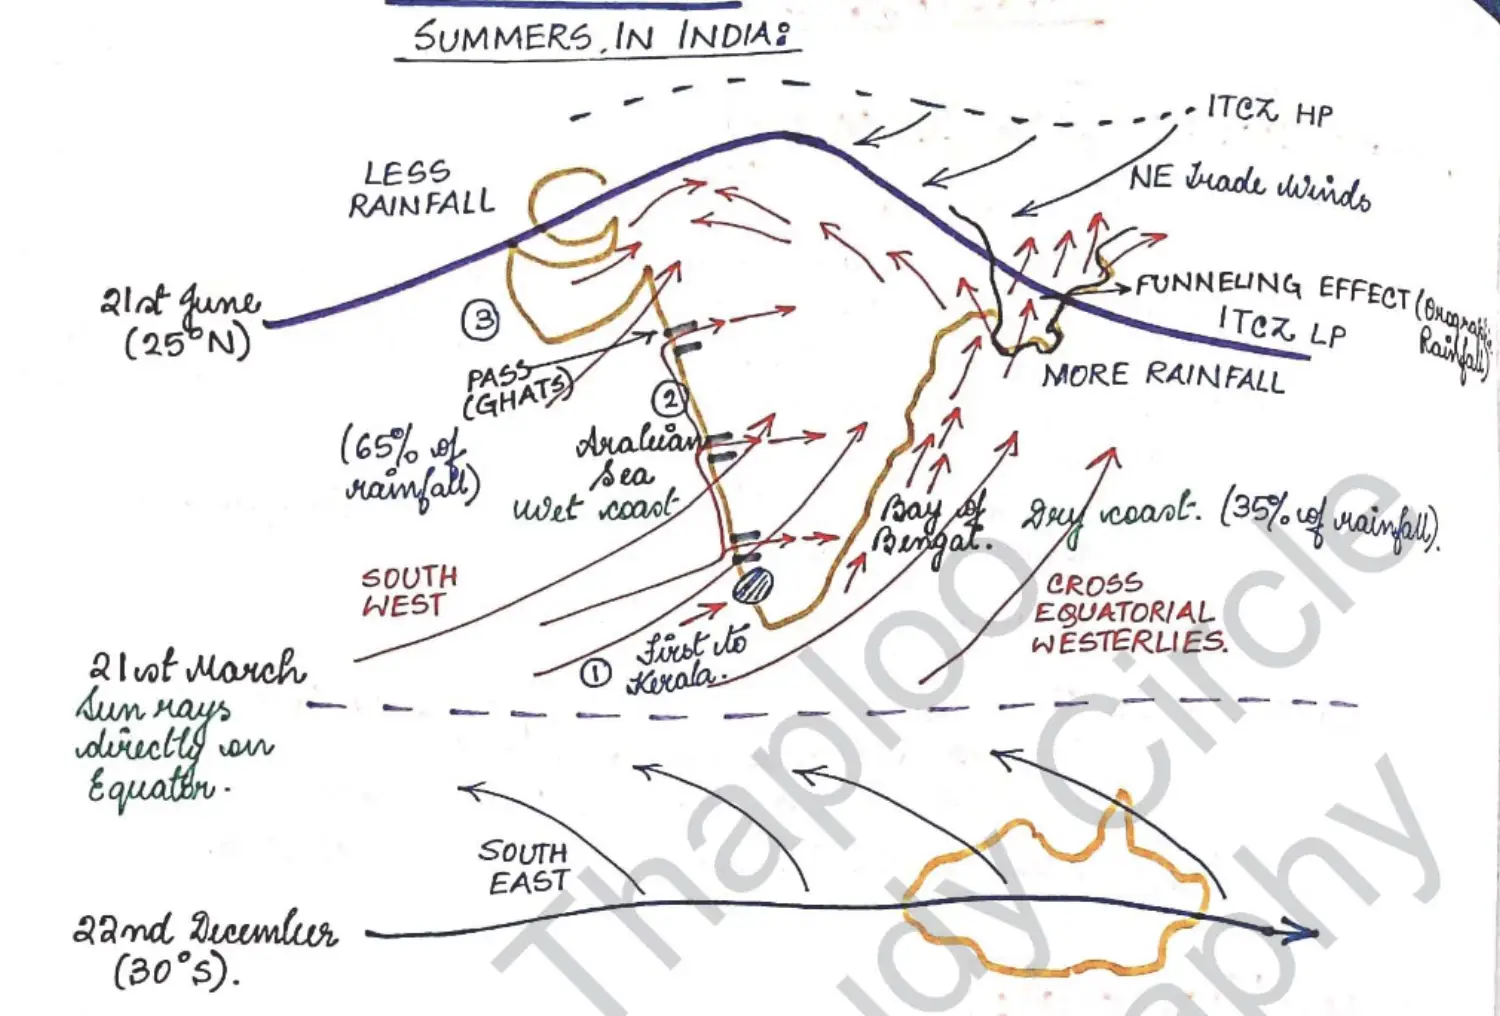 SUMMERS IN INDIA:
ITCZ HP
LESS
RAINFALL
NE Trade Winds
21st June
(25°N)
③
FUNNELING EFFECT (Orographic
Rainfall)
ITCZ LP
PASS
(GHATS)
MORE RAINFALL
②
(65% of
rainfall)
Arabian
Sea
Wet coast
Bay of
Bengal.
Dry coast. (35% of rainfall).
SOUTH
WEST
CROSS
EQUATORIAL
WESTERLIES.
① First to
Kerala.
21st March
Sun rays
directly on
Equator.
SOUTH
EAST
22nd December
(30°S).
Thaploo
dy Circle
aphy